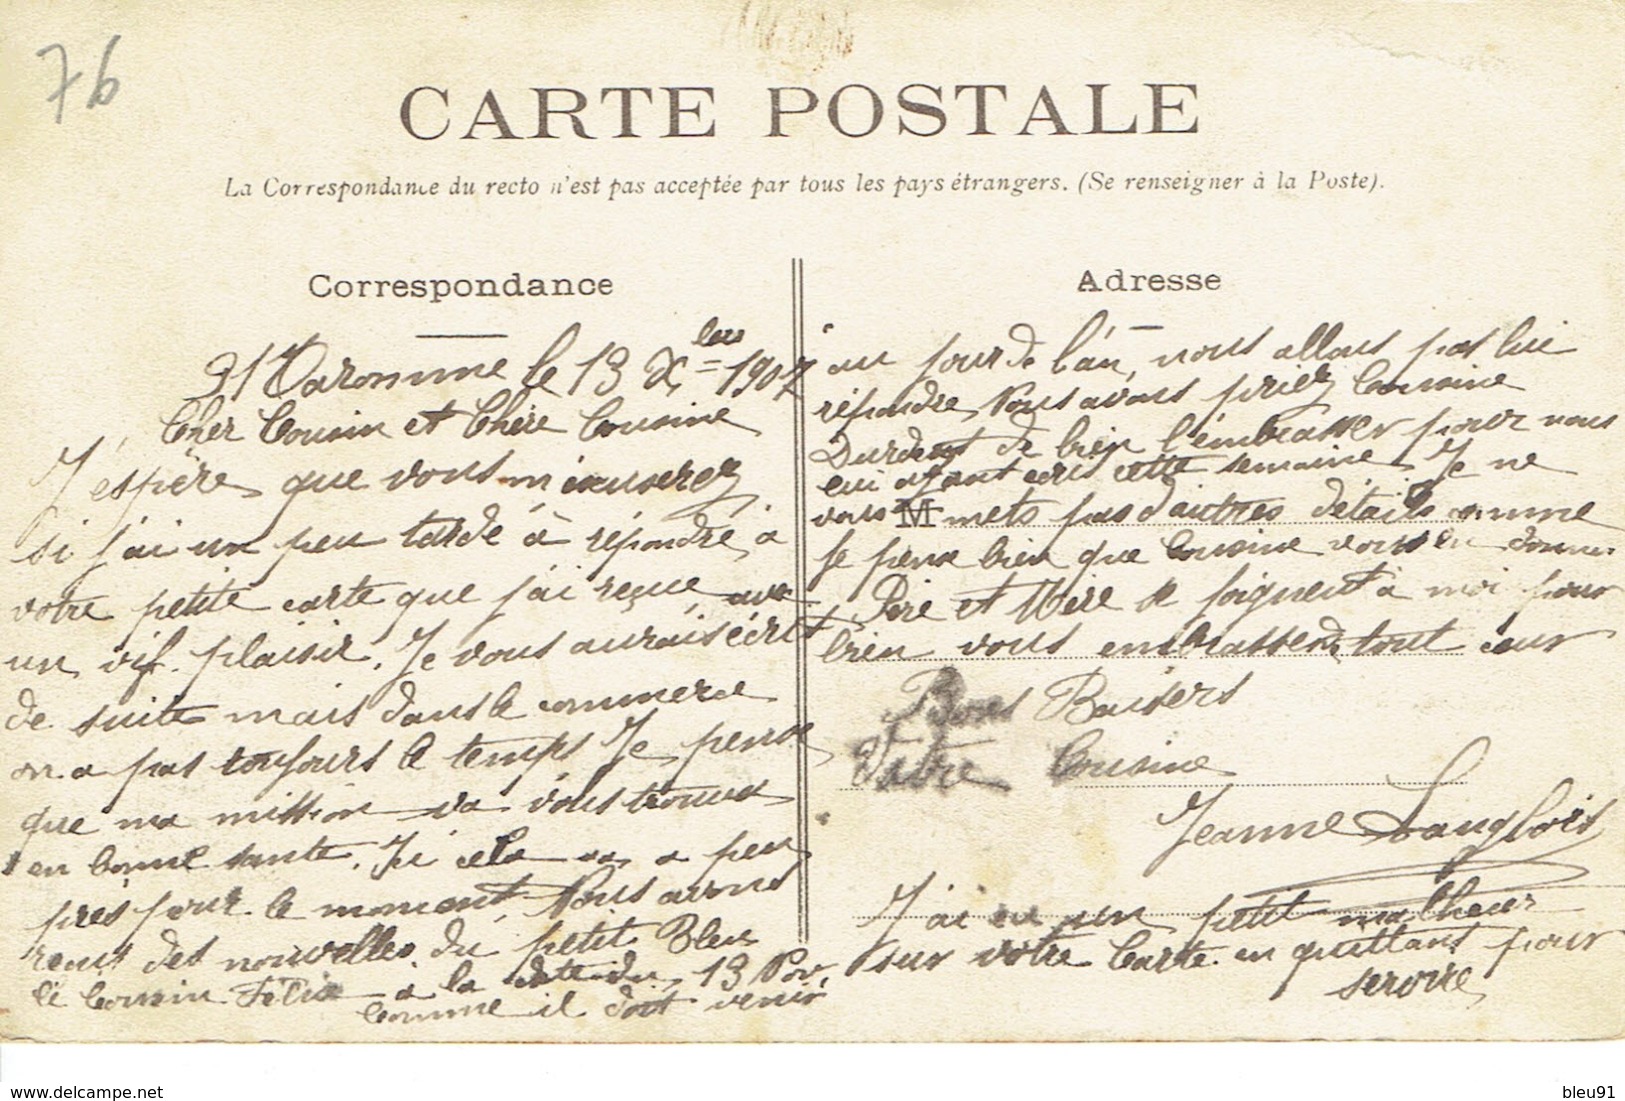 76
CARTE POSTALE
La Correspondance du recto n'est pas acceptée par tous les pays étrangers. (Se renseigner à la Poste).
Correspondance
Maromme le 13 Xbre 1907
Cher Cousin et Chère Cousine
J'éspère que vous m'éxcuserez
si j'ai un peu tardé à répondre à
votre petite carte que j'ai reçue avec
un vif plaisir. Je vous aurais écrit
de suite mais dans le commerce
on a pas toujours le temps Je pense
que ma mission va vous trouver
en bonne santé. Ici cela va a peu
près pour le moment Nous avons
reçus des nouvelles du petit Bleu
le Cousin Félix a la date du 13 Nov.
Comme il doit venir
Adresse
au jour de l'an, nous allons pas lui
répondre, Nous avons priez Cousine
de bien l'émbrasser pour nous
lui ayant écris cette semaine. Je ne
vous M mets pas d'autres détails comme
je pense bien que Cousine vous en donne
Père et Mère se joignent à moi pour
bien vous embrasser, tout cœur
Bons Baisers
Votre Cousine
Jeanne Langlois
J'ai eu un petit malheur
sur votre Carte en quittant pour
servire
delcampe.net
bleu91